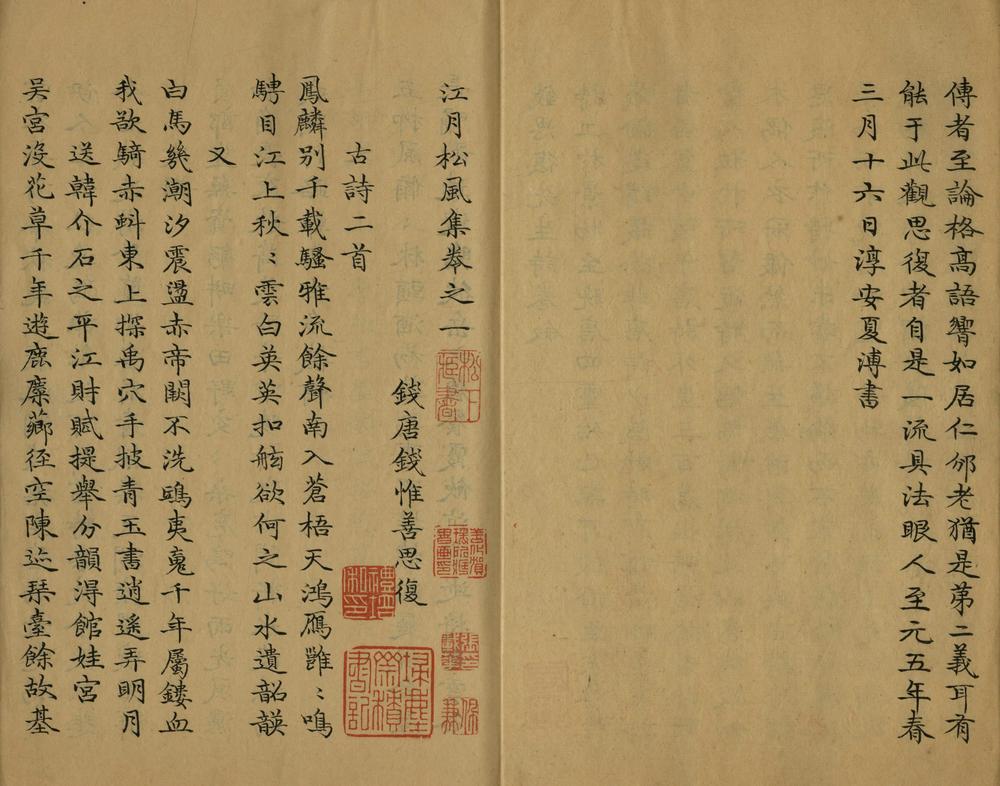 傳者至論格高語響如居仁邠老猶是第二義耳有
能于此觀思復者自是一流具法眼人至元五年春
三月十六日淳安夏溥書
江月松風集卷之一
錢唐錢惟善思復
古詩二首
鳳麟别千載騷雅流餘聲南入蒼梧天鴻鴈雝〻鳴
騁目江上秋〻雲白英英扣舷欲何之山水遺韶韺
又
白馬幾潮汐震盪赤帝闕不洗鴟夷嵬千年屬鏤血
我欲騎赤蚪東上探禹穴手披青玉書逍遙弄明月
送韓介石之平江財賦提舉分韻淂館娃宮
吴宫没花草千年遊鹿麋薌徑空陳迹琹臺餘故基
松下
延書
掃塵
齋積
書記
禮培
私印